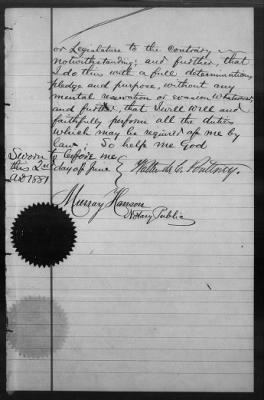 or Legislature to the contrary
notwithstanding; and further, that
I do this with a full determination,
pledge and purpose, without any
mental reservation or evasion whatsoever;
and further, that I will well and
faithfully perform all the duties
which may be required of me by
law; So help me God
Sworn to before me
this 2nd day of June
AD 1881
Walter de C. Poultney.
Murray Hanson
Notary Public